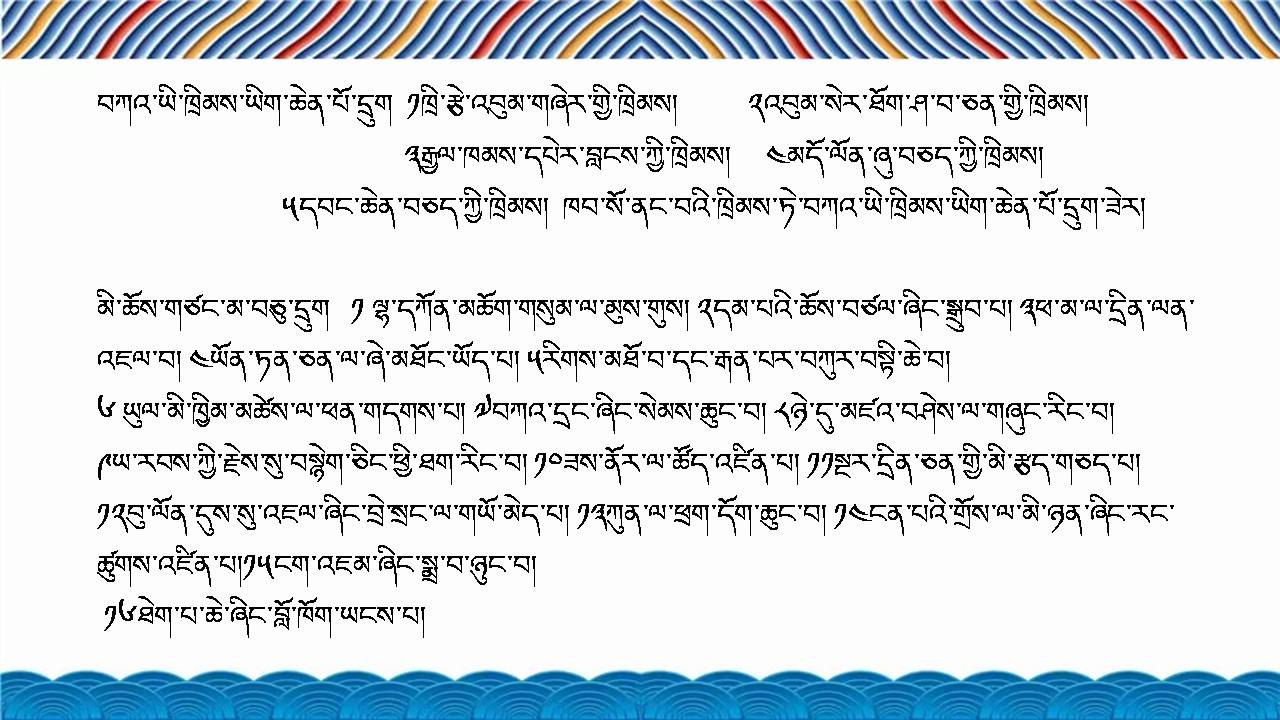 བཀའ་ཡི་ཁྲིམས་ཡིག་ཆེན་པོ་དྲུག ༡ཁྲི་རྩེ་འབུམ་གཞེར་གྱི་ཁྲིམས། ༢འབུམ་སེར་ཐོག་ཤ་བ་ཅན་གྱི་ཁྲིམས།
༣རྒྱལ་ཁམས་དཔེར་བླངས་ཀྱི་ཁྲིམས། ༤མདོ་ལོན་ཞུ་བཅད་ཀྱི་ཁྲིམས།
༥དབང་ཆེན་བཅད་ཀྱི་ཁྲིམས། ཁབ་སོ་ནང་བའི་ཁྲིམས་ཏེ་བཀའ་ཡི་ཁྲིམས་ཡིག་ཆེན་པོ་དྲུག་ཟེར།
མི་ཆོས་གཙང་མ་བཅུ་དྲུག ༡ ལྷ་དཀོན་མཆོག་གསུམ་ལ་མུས་གུས། ༢དམ་པའི་ཆོས་བཙལ་ཞིང་སྒྲུབ་པ། ༣ཕ་མ་ལ་དྲིན་ལན་
འཇལ་བ། ༤ཡོན་ཏན་ཅན་ལ་ཞེ་མཐོང་ཡོད་པ། ༥རིགས་མཐོ་བ་དང་རྒན་པར་བཀུར་བསྟི་ཆེ་བ།
༦ ཡུལ་མི་ཁྱིམ་མཚེས་ལ་ཕན་གདགས་པ། ༧བཀའ་དྲང་ཞིང་སེམས་ཆུང་བ། ༨ཉེ་དུ་མཛའ་བཤེས་ལ་གཞུང་རིང་བ།
༩ཡ་རབས་ཀྱི་རྗེས་སུ་བསྙེག་ཅིང་ཕྱི་ཐག་རིང་བ། ༡༠ཟས་ནོར་ལ་ཚོད་འཛིན་པ། ༡༡སྔར་དྲིན་ཅན་གྱི་མི་རྩད་གཅད་པ།
༡༢བུ་ལོན་དུས་སུ་འཇལ་ཞིང་བྲེ་སྲང་ལ་གཡོ་མེད་པ། ༡༣ཀུན་ལ་ཕྲག་དོག་ཆུང་བ། ༡༤ངན་པའི་གྲོས་ལ་མི་ཉན་ཞིང་རང་
ཚུགས་འཛིན་པ།༡༥ངག་འཇམ་ཞིང་སྨྲ་བ་ཉུང་བ།
༡༦ཐེག་པ་ཆེ་ཞིང་བློ་ཁོག་ཡངས་པ།